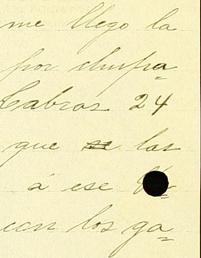 me llego la
por chupa=
Cabras 24
que las
á ese
can los ga=